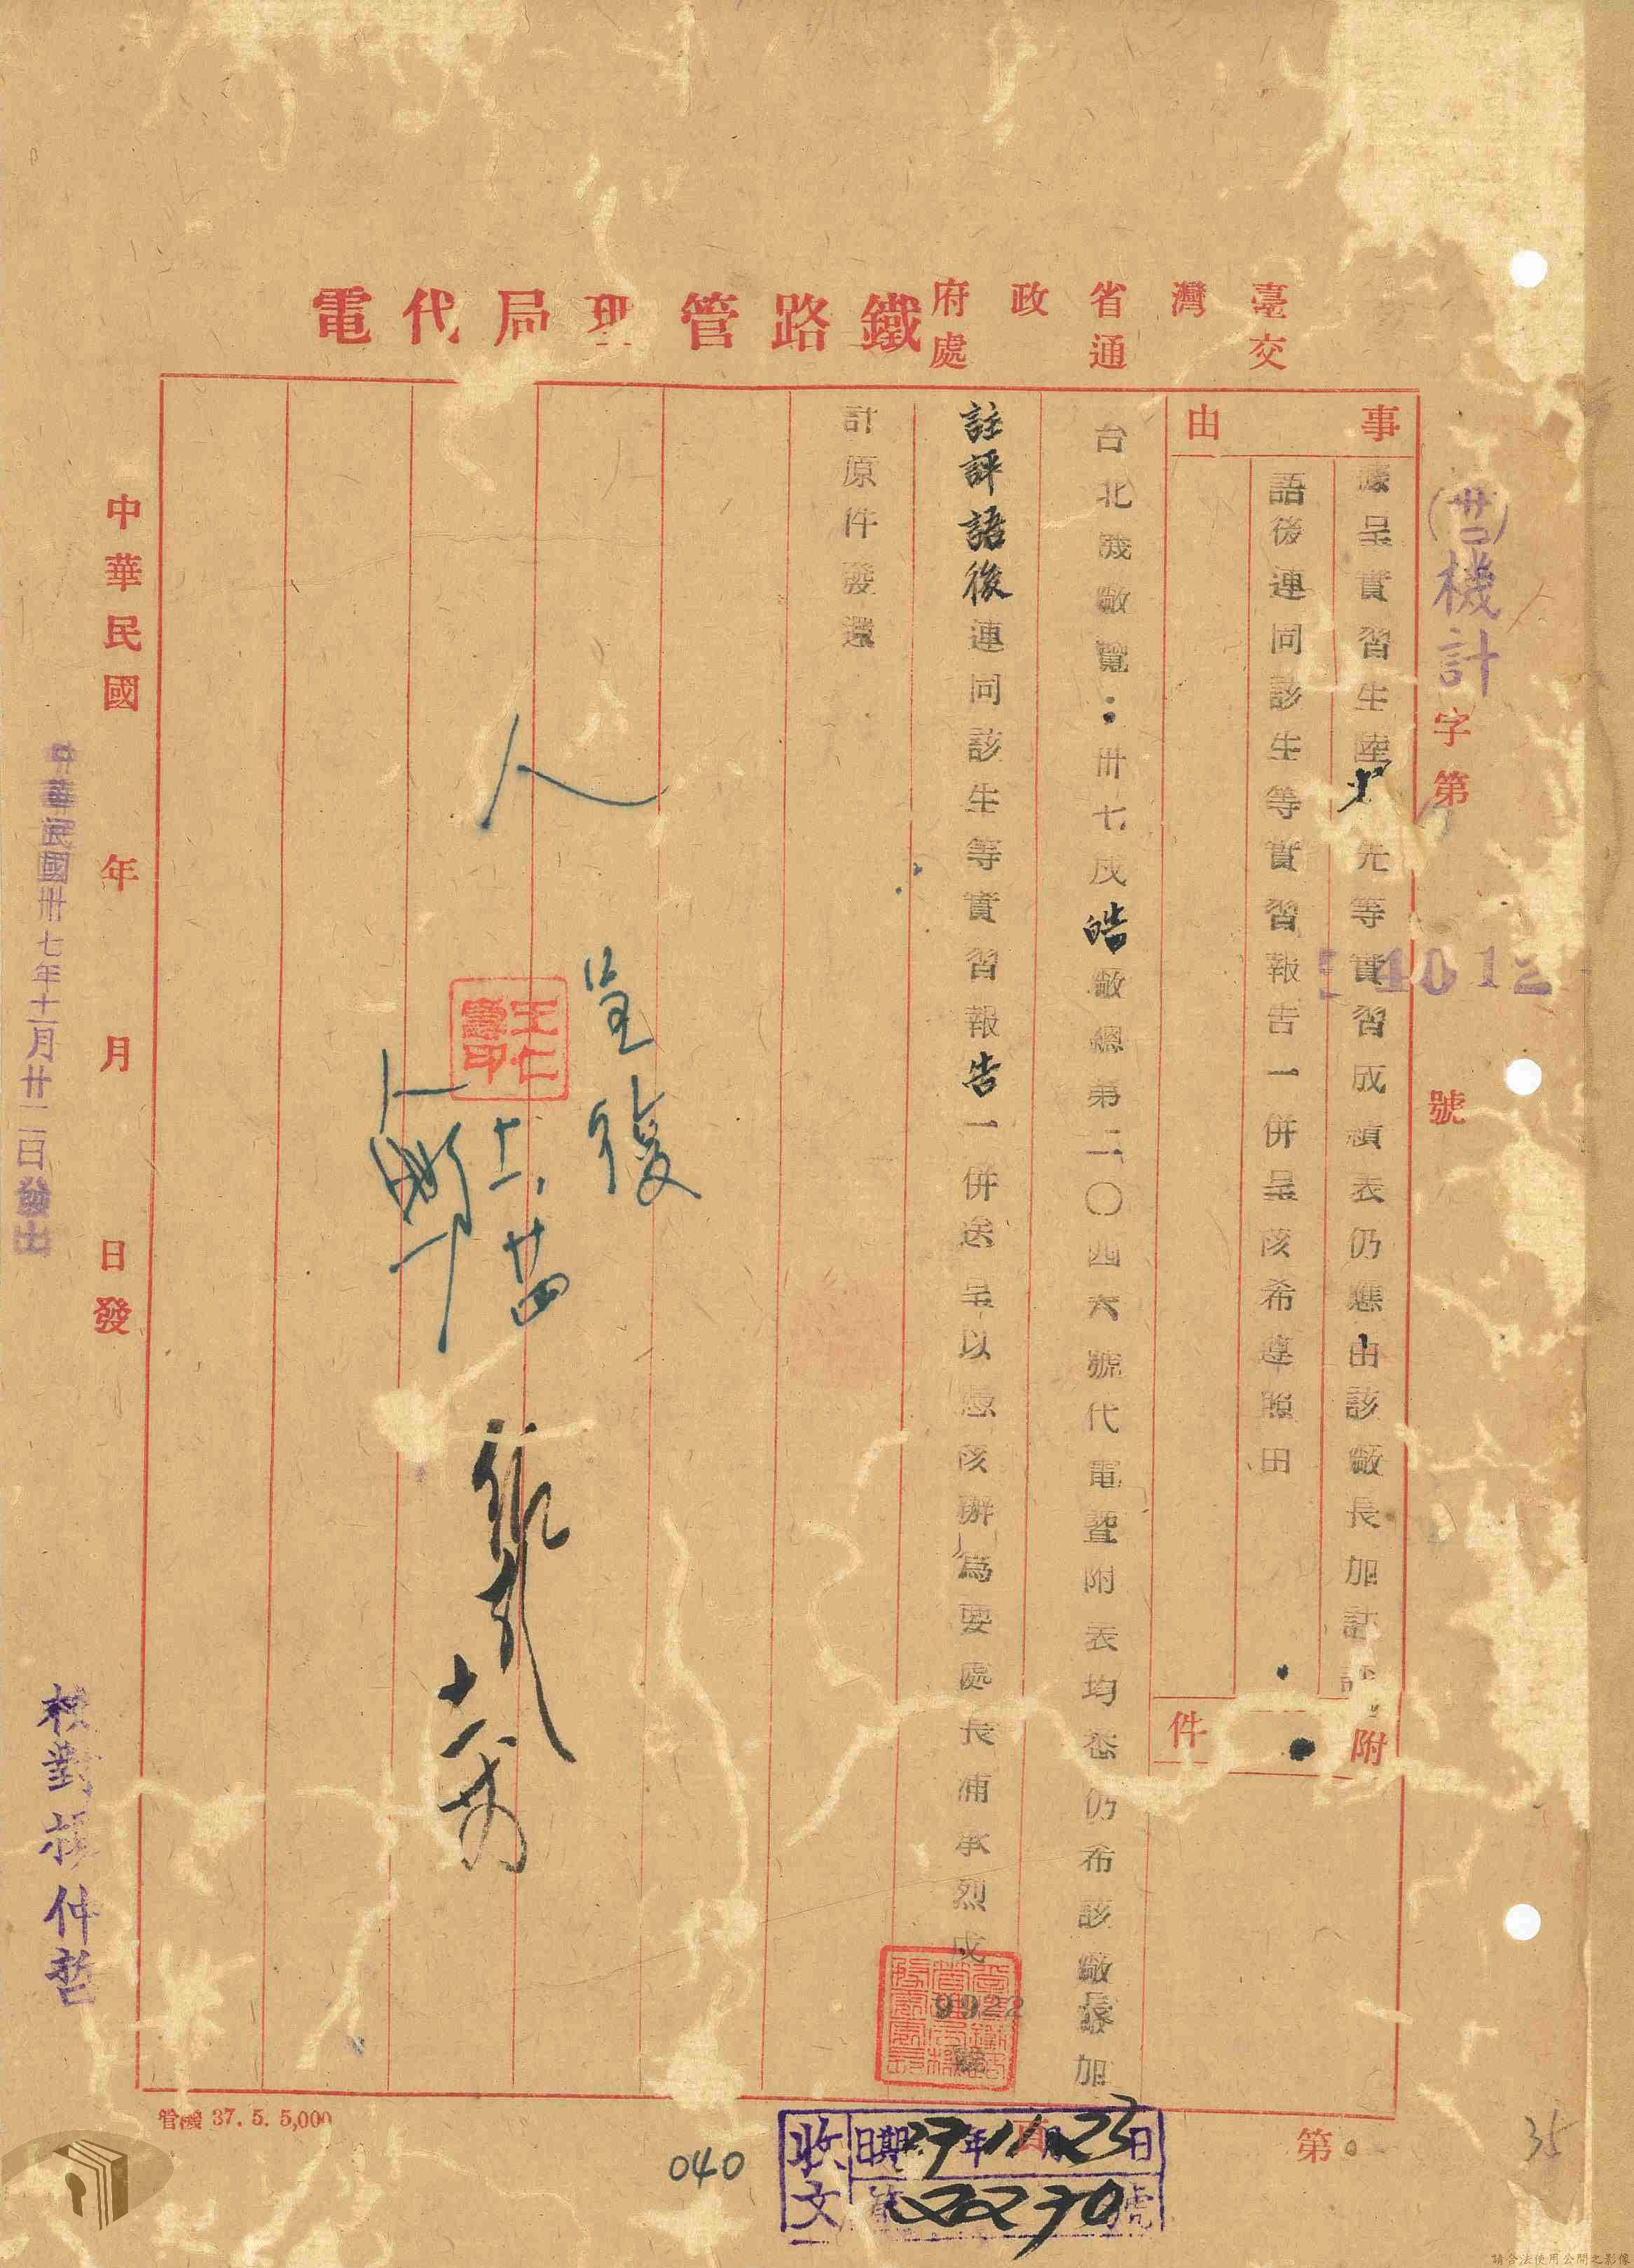 臺灣省政府
交通處
鐵路管理局代電
(卅七)機計字第 4012 號
事由
據呈實習生陸 先等實習成績表仍應由該廠長加註評
語後連同該生等實習報告一併呈核希遵照由
附件
台北機廠覽：卅七戌皓廠總第二〇四六號代電暨附表均悉仍希該廠長加
註評語後連同該生等實習報告一併送呈以憑核辦為要處長浦承烈戌
9922
計原件發還
人
呈復
王仁壽印
十一、廿四
中華民國 年 月 日發
中華民國卅七年十一月廿二日發出
校對 楊仲哲
管機 37. 5. 5,000
040
收文
日期 37年11月23日
第2230號
第 頁
35
請合法使用公開之影像